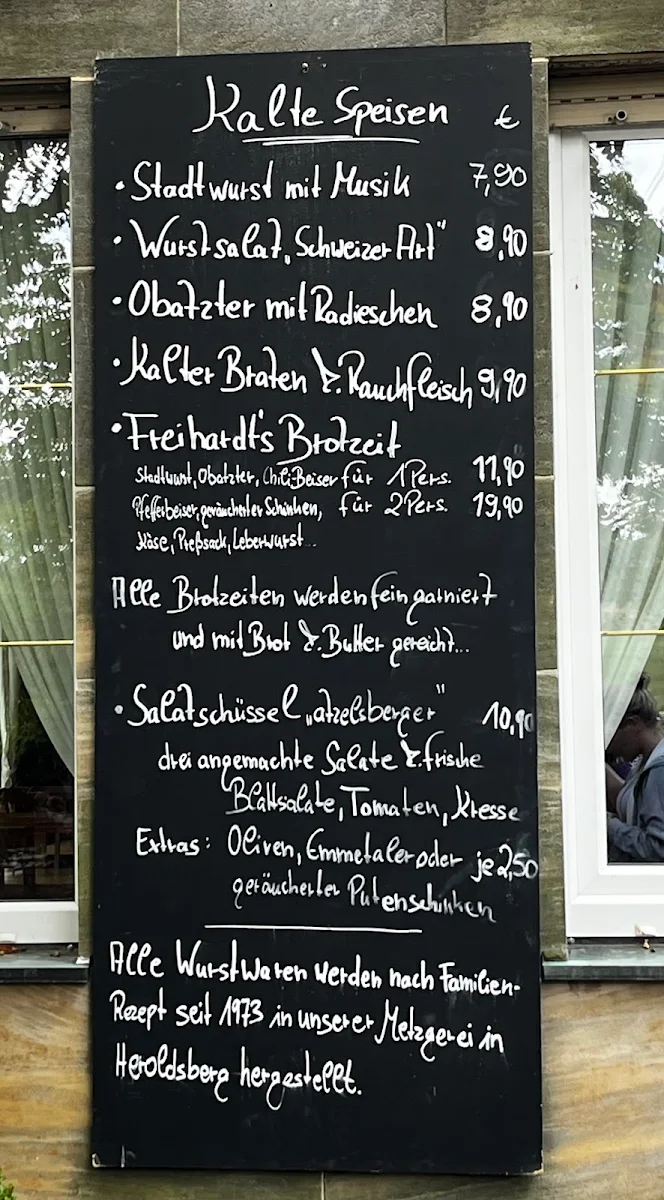 Kalte Speisen €
· Stadtwurst mit Musik 7,90
· Wurstsalat „Schweizer Art" 8,90
· Obatzter mit Radieschen 8,90
· Kalter Braten & Rauchfleisch 9,90
· Freihardt's Brotzeit
Stadtwurst, Obatzter, Chili Beiser für 1 Pers. 11,90
Pfefferbeiser, geräucherter Schinken, für 2 Pers. 19,90
Käse, Preßsack, Leberwurst...
Alle Brotzeiten werden fein garniert
und mit Brot & Butter gereicht...
· Salatschüssel „atzelsberger" 10,90
drei angemachte Salate & frische
Blattsalate, Tomaten, Kresse
Extras: Oliven, Emmetaler oder je 2,50
geräucherter Putenschinken
Alle Wurstwaren werden nach Familien-
Rezept seit 1973 in unserer Metzgerei in
Heroldsberg hergestellt.